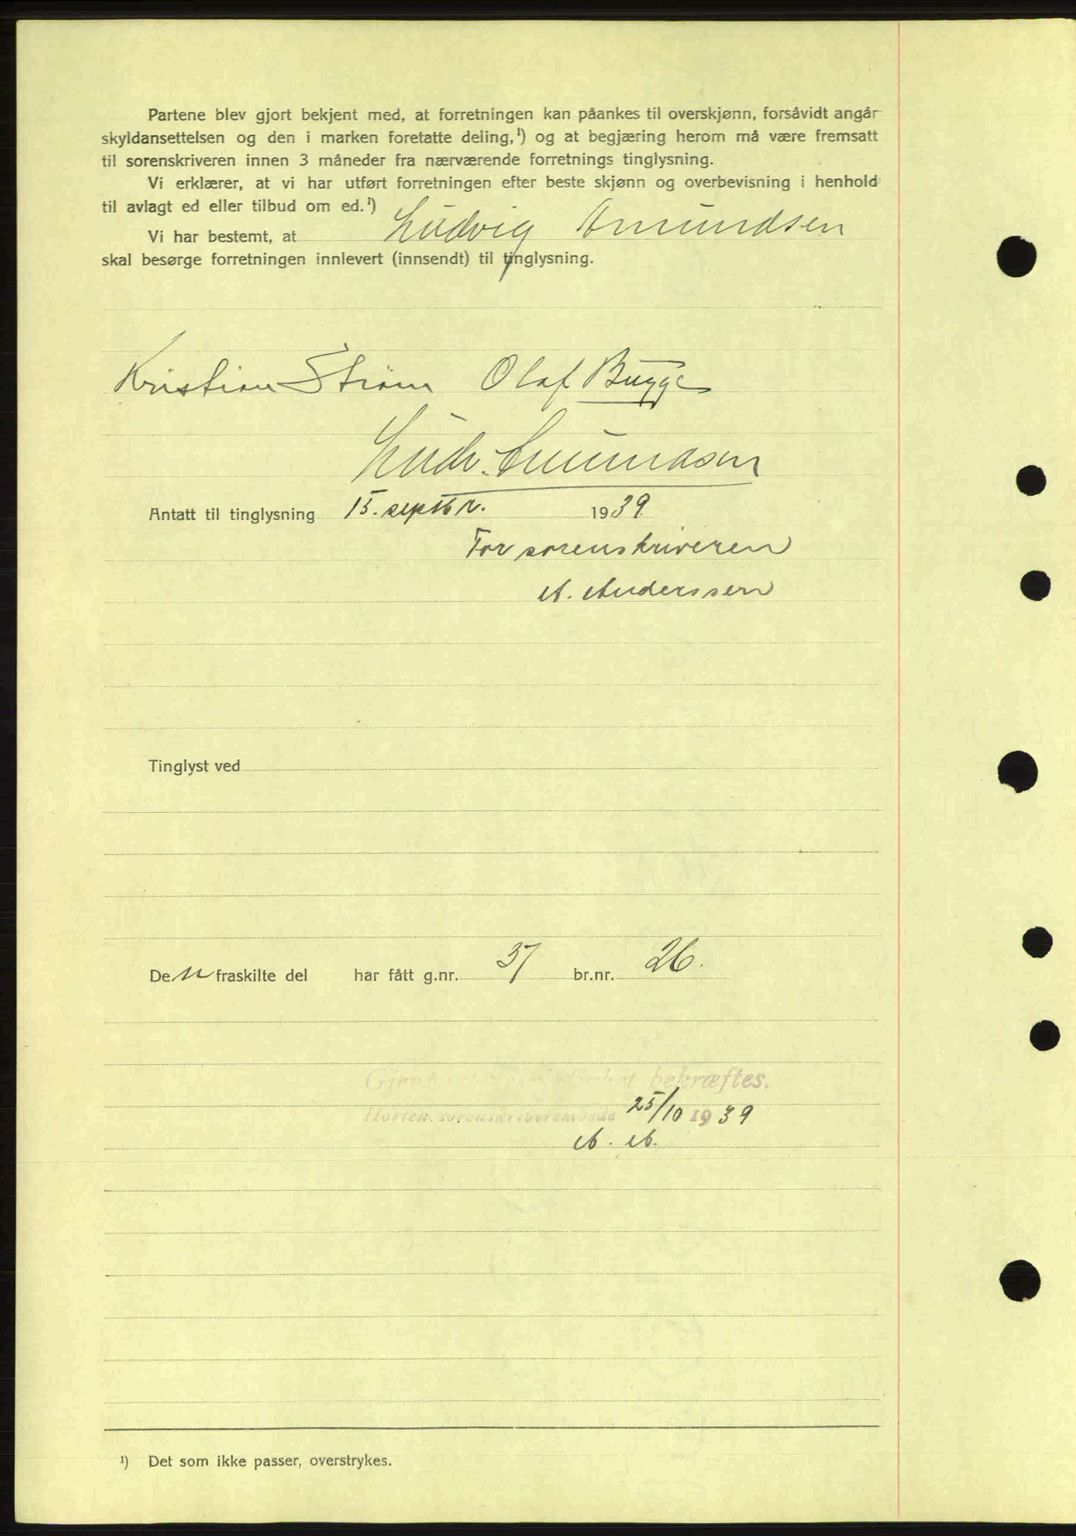 Partene blev gjort bekjent med, at forretningen kan påankes til overskjønn, forsåvidt angår
skyldansettelsen og den i marken foretatte deling,¹) og at begjæring herom må være fremsatt
til sorenskriveren innen 3 måneder fra nærværende forretnings tinglysning.
Vi erklærer, at vi har utført forretningen efter beste skjønn og overbevisning i henhold
til avlagt ed eller tilbud om ed.¹)
Vi har bestemt, at Ludvig Amundsen
skal besørge forretningen innlevert (innsendt) til tinglysning.
Kristian Strøm Olaf Bugge
Ludv. Amundsen
Antatt til tinglysning 15. septbr. 1939
For sorenskriveren
A. Anderssen
Tinglyst ved
Den fraskilte del har fått g.nr. 37 br.nr. 26.
bekræftes.
Horten sorenskriverembede 25/10 1939
A. A.
¹) Det som ikke passer, overstrykes.